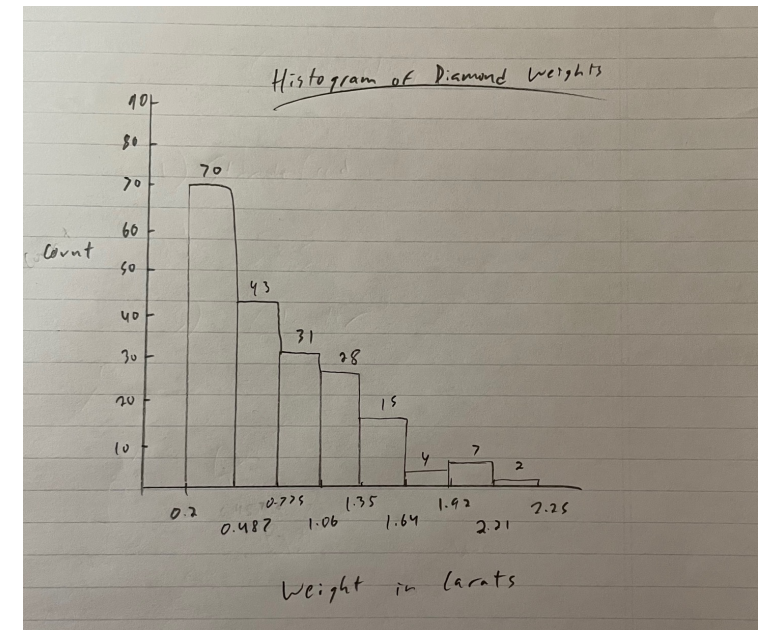 Histogram of Diamond Weights
90
80
70
70
60
Count
50
43
40
31
30
28
20
15
10
4
7
2
0.2
0.487
0.775
1.06
1.35
1.64
1.92
2.21
2.25
Weight in Carats